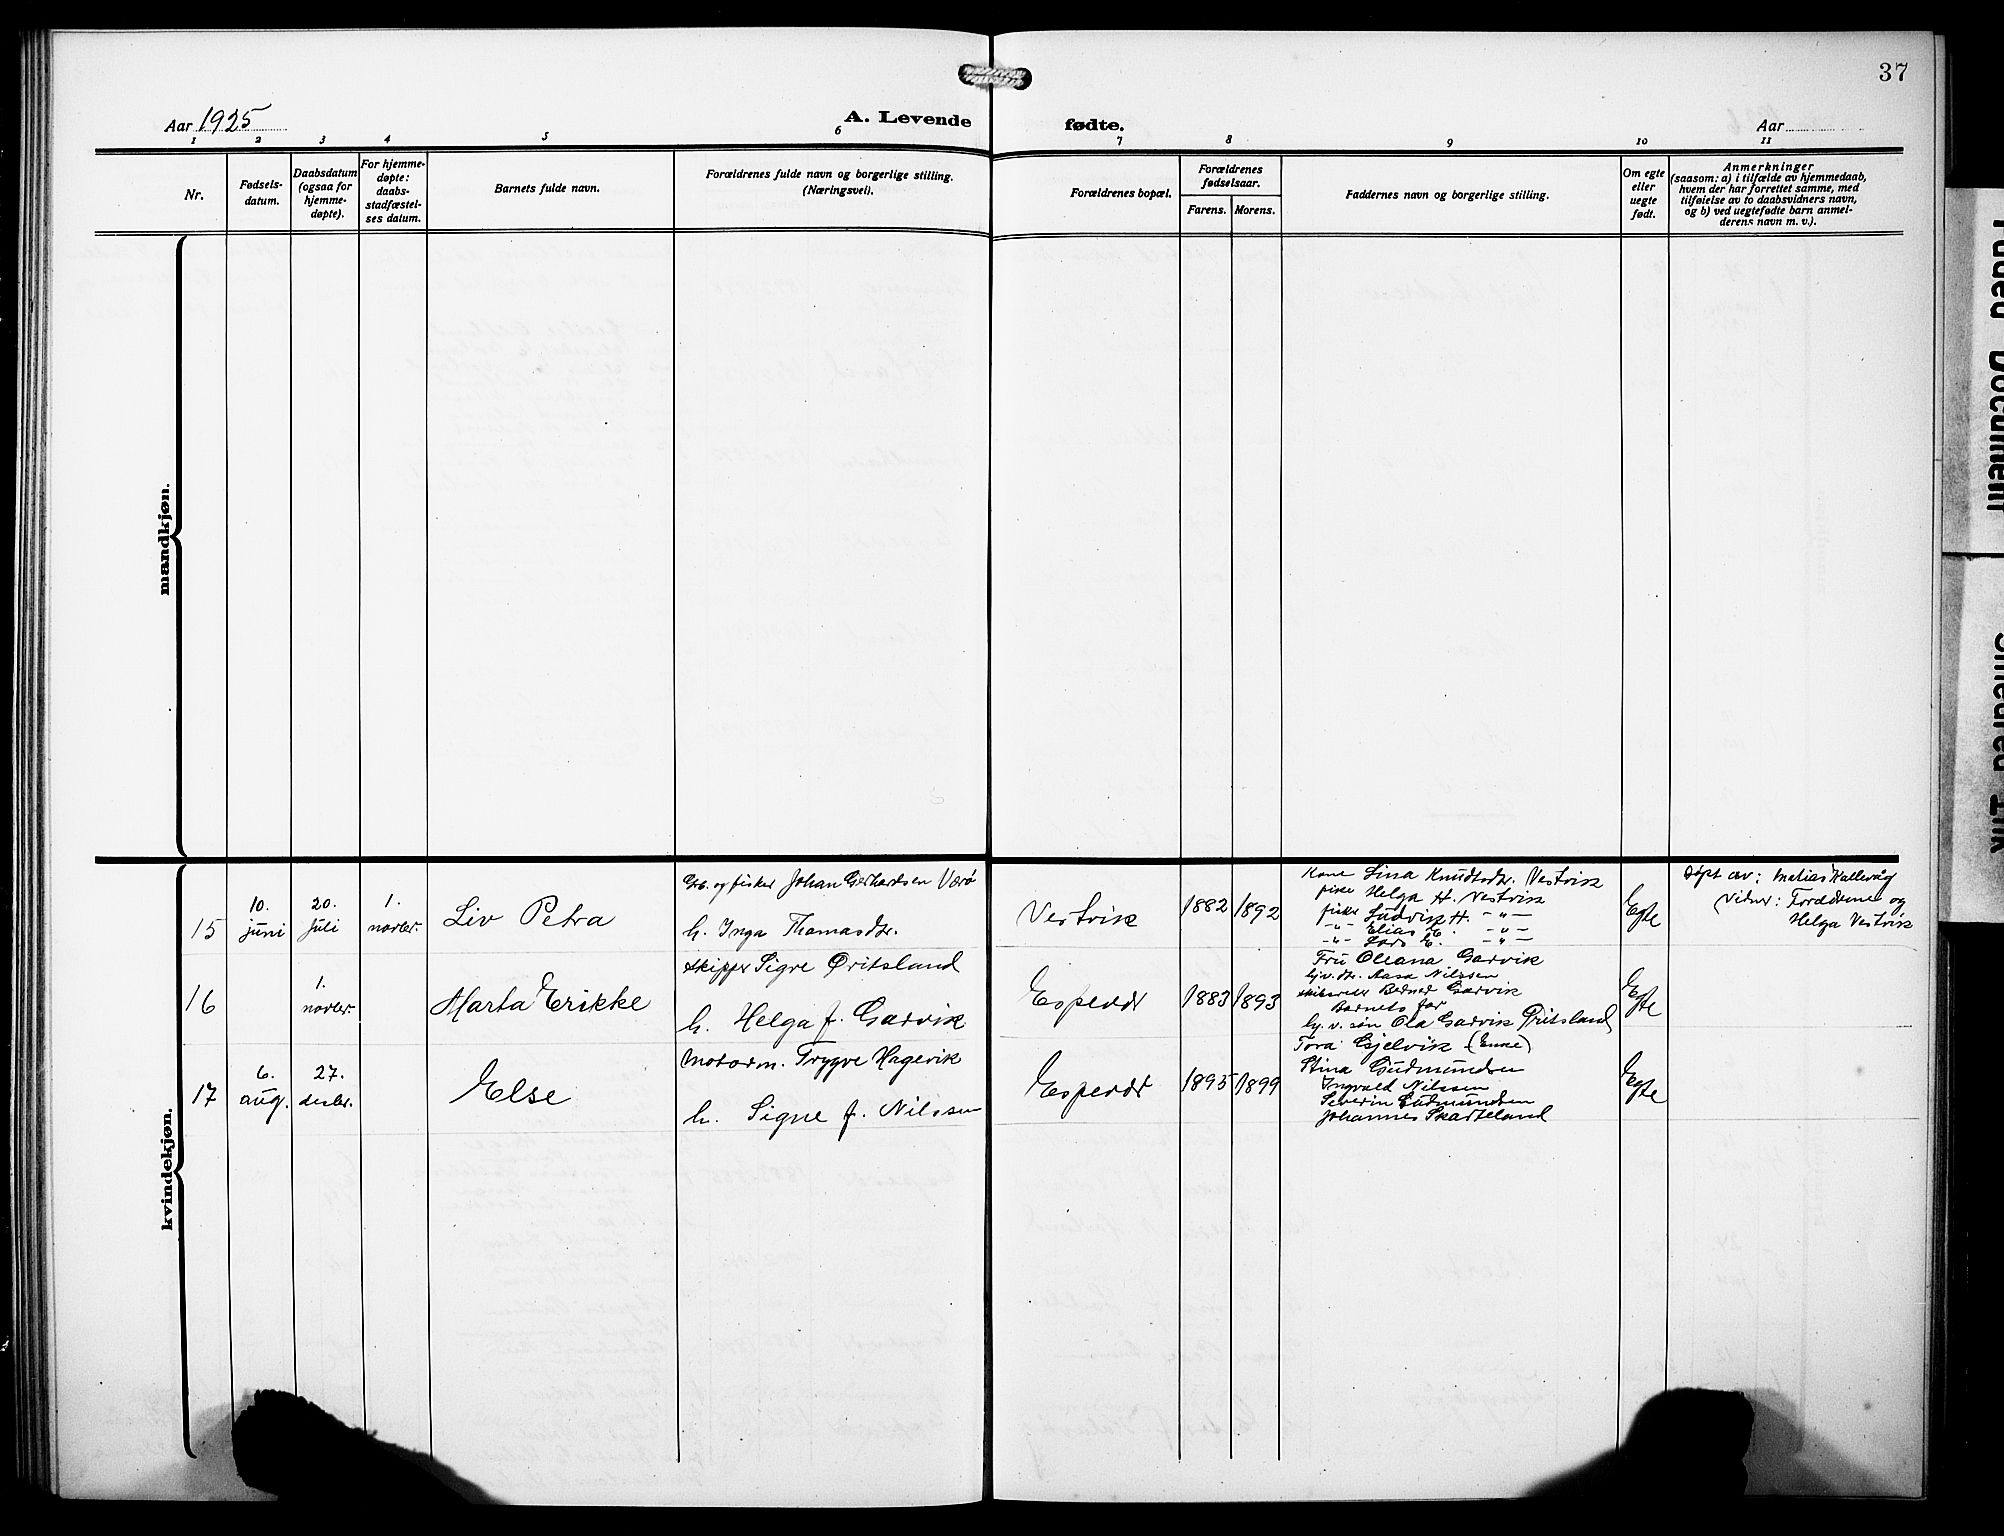 37
Aar 1925
A. Levende
fødte.
Aar
1 2 3 4 5 6 7 8 9 10 11
Nr.
Fødsels-
datum.
Daabsdatum
(ogsaa for
hjemme-
døpte).
For hjemme-
døpte:
daabs-
stadfæstel-
ses datum.
Barnets fulde navn.
Forældrenes fulde navn og borgerlige stilling.
(Næringsvei).
Forældrenes bopæl.
Forældrenes
fødselsaar.
Farens. Morens.
Faddernes navn og borgerlige stilling.
Om egte
eller
uegte
født.
Anmerkninger
(saasom: a) i tilfælde av hjemmedaab,
hvem der har forrettet samme, med
tilføielse av to daabsvidners navn,
og b) ved uegtefødte barn anmel-
derens navn m. v.).
mandkjøn.
kvindekjøn.
15
10.
juni
20.
juli
1.
novbr.
Liv Petra
Grb. og fisker Johan Gerhardsen Værø
h. Inga Thomasdtr.
Vestvik
1882 1892
Kone Lina Knudtsdtr. Vestvik
pike Helga H. Vestvik
fisker Ludvik H. -"-
-"- Elias E. -"-
-"- Lars E. -"-
Egte
Døpt av: Matias Kallevåg
Vidner: Forældrene og
Helga Vestvik
16
1.
novbr.
Marta Erikke
Skipper Sigve Øritsland
h. Helga f. Garvik
Espevær
1883 1893
Fru Oleana Garvik
hjv. dtr. Aasa Nilssen
skibsreder Berner Garvik
Barnets far
hj. v. søn Ola Garvik Øritsland
Egte
17
6.
aug.
27.
desbr.
Else
Motorm. Trygve Hagevik
h. Signe f. Nilssen
Espevær
1895 1899
Tora Gjelvik (Enke)
Stina Gudmundsen
Ingvald Nilssen
Severin Gudmundsen
Johannes Skarteland
Egte
Faded Document
Smeared Ink